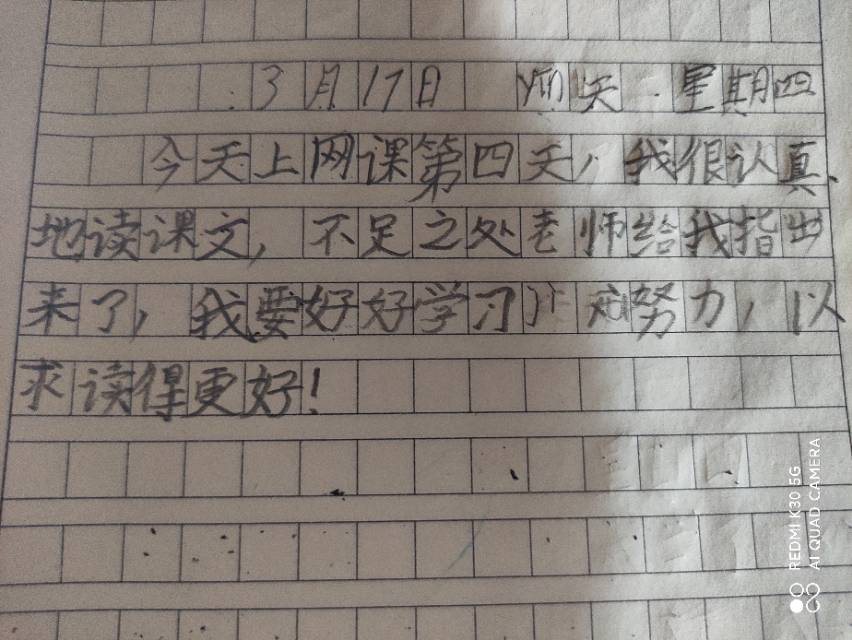 3月17日 天 星期四
今天上网课第四天，我很认真
地读课文，不足之处老师给我指出
来了，我要好好学习，努力，以
求读得更好！
REDMI K30 5G
AI QUAD CAMERA